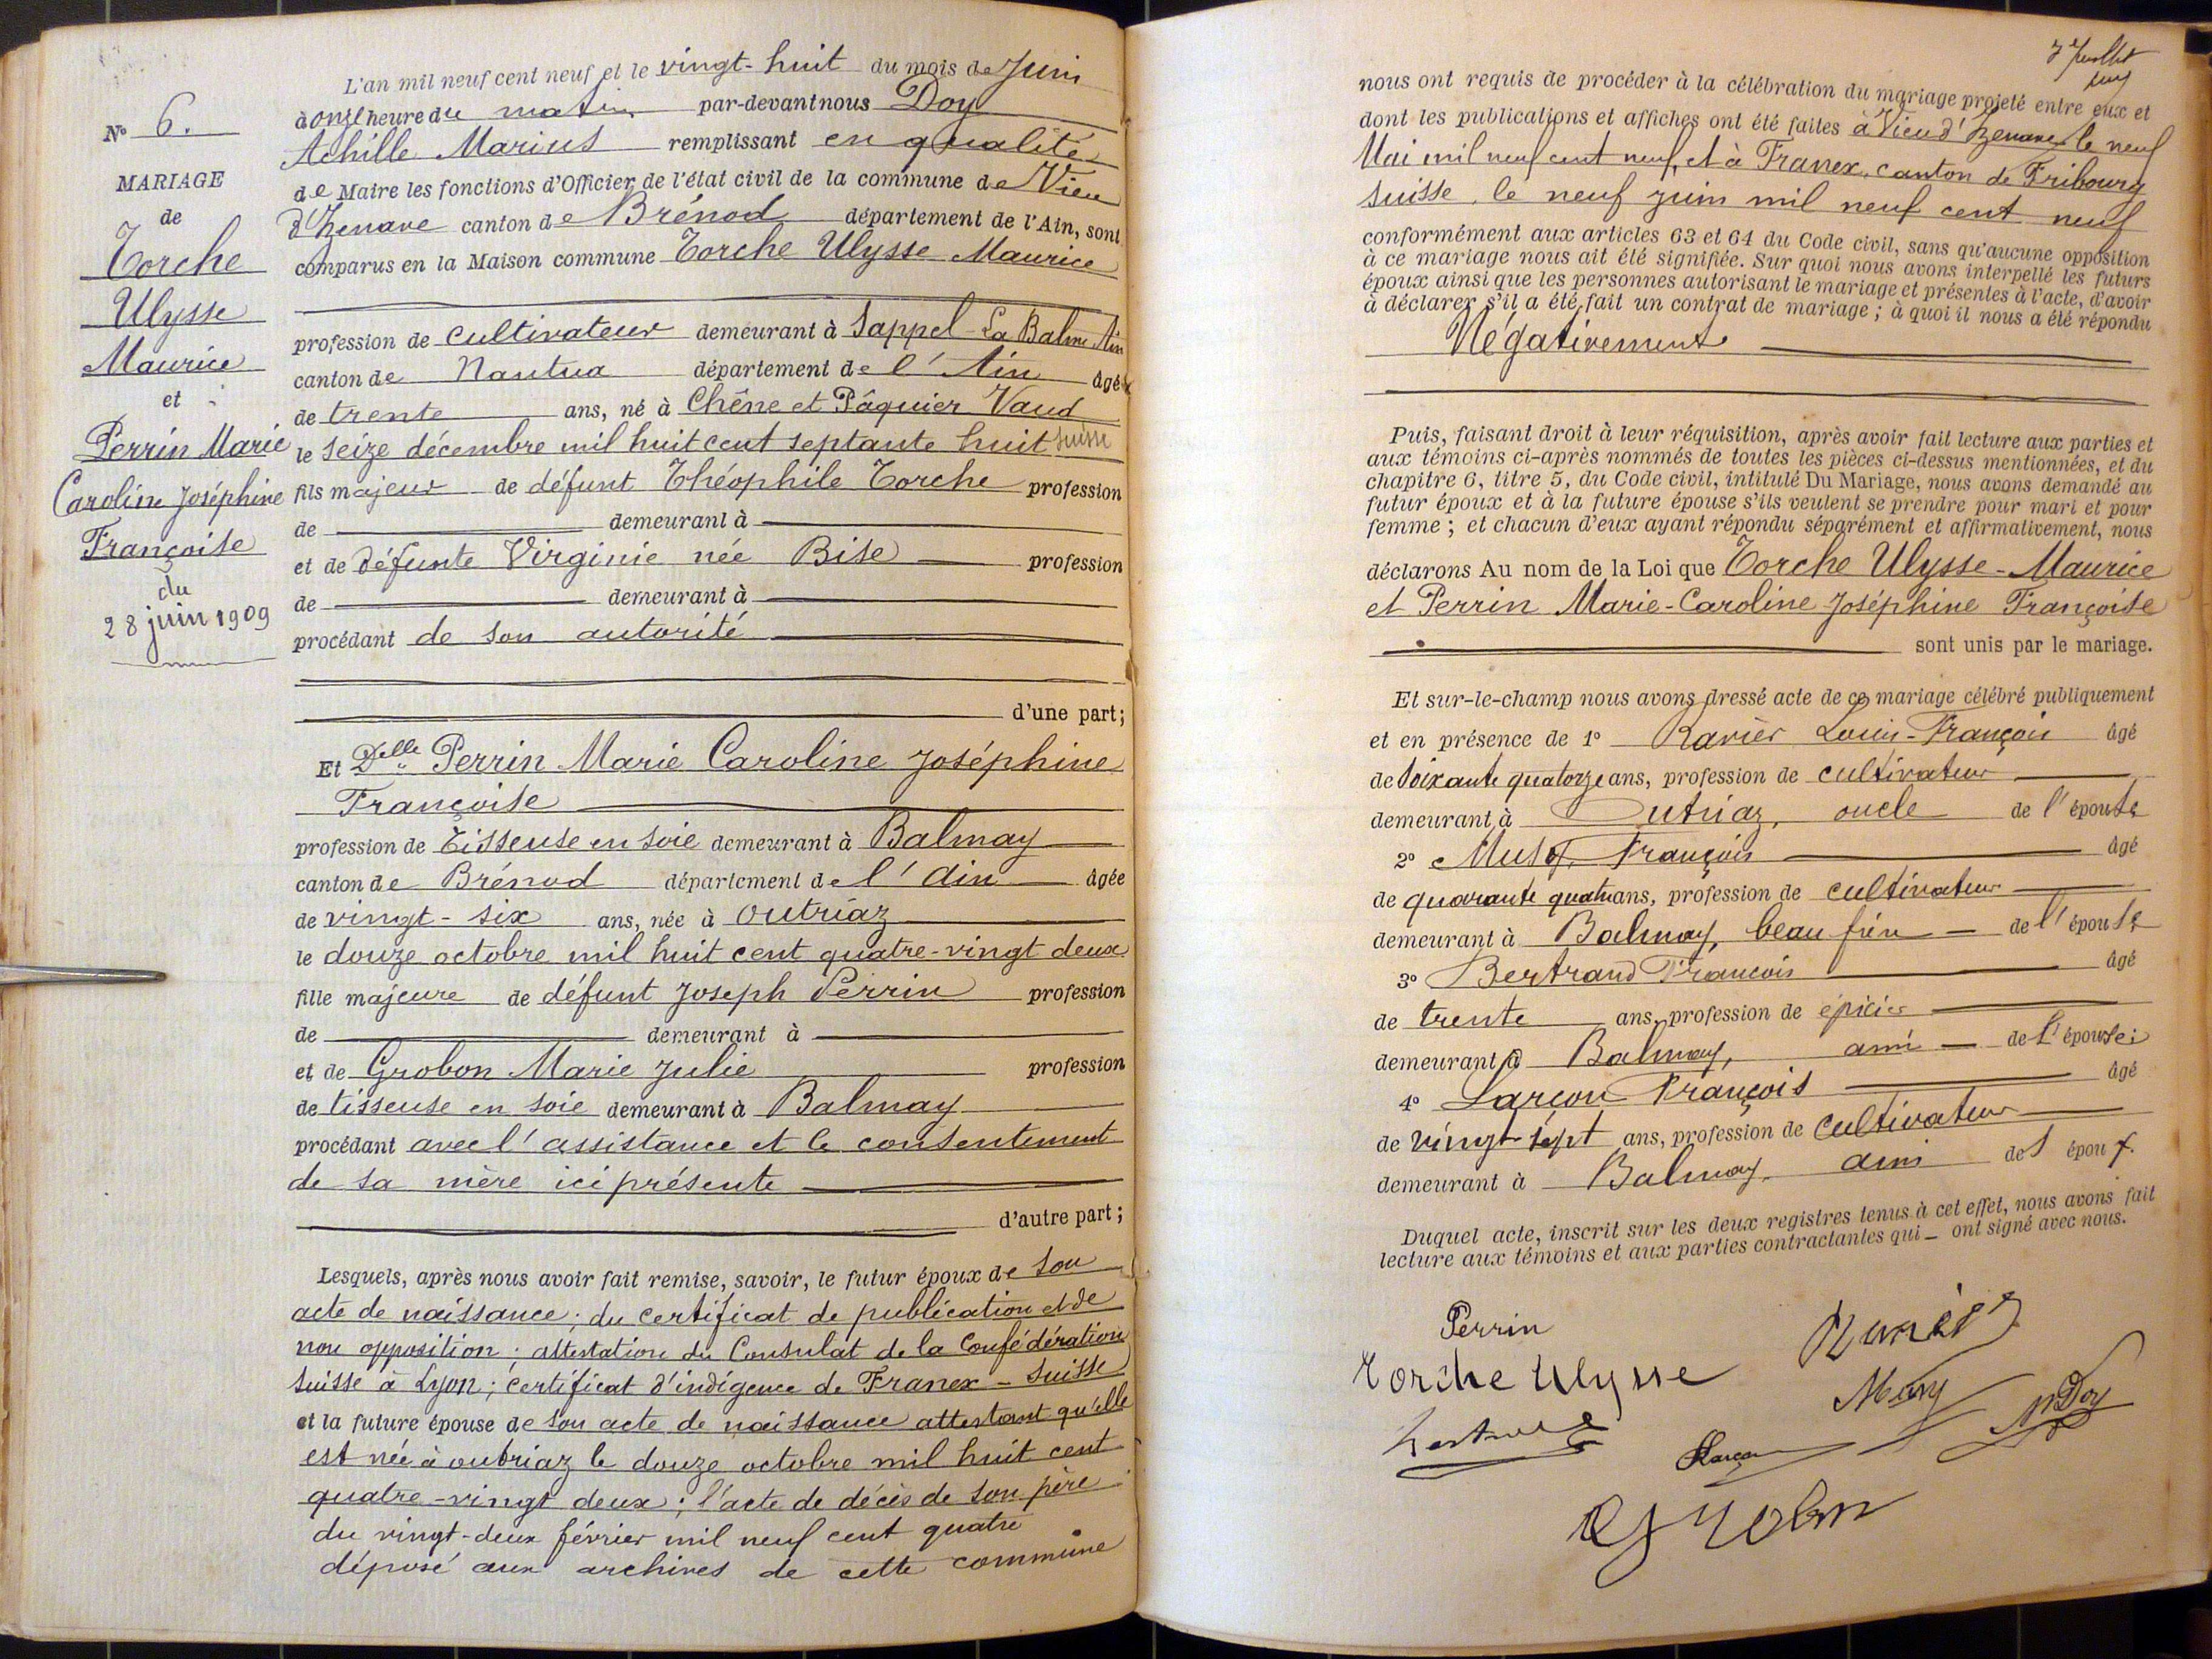 N° 6.
MARIAGE
de
Torche
Ulysse
Maurice
et
Perrin Marie
Caroline Joséphine
Françoise
du
28 juin 1909
L'an mil neuf cent neuf et le vingt-huit du mois de Juin
à onze heure du matin par-devant nous Doy
Achille Marius remplissant en qualité
de Maire les fonctions d'Officier de l'état civil de la commune de Vieu
d'Izenave canton de Brénod département de l'Ain, sont
comparus en la Maison commune Torche Ulysse Maurice
profession de cultivateur demeurant à Sappel - La Balme Ain
canton de Nantua département de l'Ain âgé
de trente ans, né à Chêne et Pâquier Vaud
le seize décembre mil huit cent septante huit Suisse
fils majeur de défunt Théophile Torche profession
de demeurant à
et de défunte Virginie née Bise profession
de demeurant à
procédant de son autorité
d'une part;
Et Delle Perrin Marie Caroline Joséphine
Françoise
profession de Tisseuse en soie demeurant à Balmay
canton de Brénod département de l'Ain âgée
de vingt-six ans, née à Outriaz
le douze octobre mil huit cent quatre-vingt deux
fille majeure de défunt Joseph Perrin profession
de demeurant à
et de Grobon Marie Julie profession
de tisseuse en soie demeurant à Balmay
procédant avec l'assistance et le consentement
de sa mère ici présente
d'autre part;
Lesquels, après nous avoir fait remise, savoir, le futur époux de son
acte de naissance; du certificat de publication et de
non opposition; attestation du Consulat de la Confédération
Suisse à Lyon; certificat d'indigence de Franex - Suisse
et la future épouse de son acte de naissance attestant qu'elle
est née à outriaz le douze octobre mil huit cent
quatre-vingt deux; l'acte de décès de son père
du vingt-deux février mil neuf cent quatre
déposé aux archives de cette commune
7 Juillet
nous ont requis de procéder à la célébration du mariage projeté entre eux et
dont les publications et affiches ont été faites à Vieu d'Izenave le neuf
Mai mil neuf cent neuf, et à Franex, canton de Fribourg
Suisse, le neuf juin mil neuf cent neuf
conformément aux articles 63 et 64 du Code civil, sans qu'aucune opposition
à ce mariage nous ait été signifiée. Sur quoi nous avons interpellé les futurs
époux ainsi que les personnes autorisant le mariage et présentes à l'acte, d'avoir
à déclarer s'il a été fait un contrat de mariage; à quoi il nous a été répondu
Négativement
Puis, faisant droit à leur réquisition, après avoir fait lecture aux parties et
aux témoins ci-après nommés de toutes les pièces ci-dessus mentionnées, et du
chapitre 6, titre 5, du Code civil, intitulé Du Mariage, nous avons demandé au
futur époux et à la future épouse s'ils veulent se prendre pour mari et pour
femme; et chacun d'eux ayant répondu séparément et affirmativement, nous
déclarons Au nom de la Loi que Torche Ulysse-Maurice
et Perrin Marie-Caroline Joséphine Françoise
sont unis par le mariage.
Et sur-le-champ nous avons dressé acte de ce mariage célébré publiquement
et en présence de 1° Ravier Louis-François âgé
de soixante quatorze ans, profession de cultivateur
demeurant à Outriaz, oncle de l'épouse
2° François âgé
de quarante quatre ans, profession de cultivateur
demeurant à Balmay, beau frère de l'épouse
3° Bertrand François âgé
de trente ans, profession de épicier
demeurant à Balmay, ami de l'épouse;
4° Larçon François âgé
de vingt-sept ans, profession de cultivateur
demeurant à Balmay, ami des époux.
Duquel acte, inscrit sur les deux registres tenus à cet effet, nous avons fait
lecture aux témoins et aux parties contractantes qui ont signé avec nous.
Perrin
Ravier
Torche Ulysse
Doy
Larçon